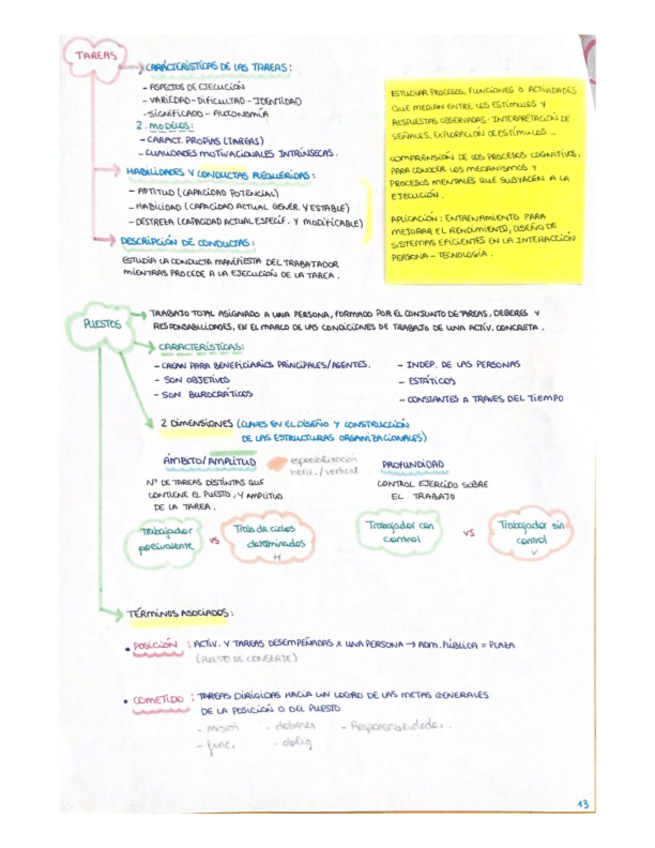 TAREAS
CARACTERÍSTICAS DE LAS TAREAS:
- ASPECTOS DE EJECUCIÓN
- VARIEDAD - DIFICULTAD - IDENTIDAD
- SIGNIFICADO - AUTONOMÍA
2 MODELOS:
- CARACT. PROPIAS (TAREAS)
- CUALIDADES MOTIVACIONALES INTRÍNSECAS.
HABILIDADES Y CONDUCTAS REQUERIDAS:
- APTITUD (CAPACIDAD POTENCIAL)
- HABILIDAD (CAPACIDAD ACTUAL GENER. Y ESTABLE)
- DESTREZA (CAPACIDAD ACTUAL ESPECÍF. Y MODIFICABLE)
DESCRIPCIÓN DE CONDUCTAS:
ESTUDIA LA CONDUCTA MANIFIESTA DEL TRABAJADOR
MIENTRAS PROCEDE A LA EJECUCIÓN DE LA TAREA.
ESTUDIAR PROCESOS, FUNCIONES O ACTIVIDADES
QUE MEDIAN ENTRE LOS ESTÍMULOS Y
RESPUESTAS OBSERVADAS: INTERPRETACIÓN DE
SEÑALES, EXPLORACIÓN DE ESTÍMULOS...
COMPRENSIÓN DE LOS PROCESOS COGNITIVOS,
PARA CONOCER LOS MECANISMOS Y
PROCESOS MENTALES QUE SUBYACEN A LA
EJECUCIÓN.
APLICACIÓN: ENTRENAMIENTO PARA
MEJORAR EL RENDIMIENTO, DISEÑO DE
SISTEMAS EFICIENTES EN LA INTERACCIÓN
PERSONA - TECNOLOGÍA.
PUESTOS
TRABAJO TOTAL ASIGNADO A UNA PERSONA, FORMADO POR EL CONJUNTO DE TAREAS, DEBERES Y
RESPONSABILIDADES, EN EL MARCO DE LAS CONDICIONES DE TRABAJO DE UNA ACTIV. CONCRETA.
CARACTERÍSTICAS:
- CREAN PARA BENEFICIARIOS PRINCIPALES/AGENTES.
- SON OBJETIVOS
- SON BUROCRÁTICOS
- INDEP. DE LAS PERSONAS
- ESTÁTICOS
- CONSTANTES A TRAVES DEL TIEMPO
2 DIMENSIONES (CLAVES EN EL DISEÑO Y CONSTRUCCIÓN
DE LAS ESTRUCTURAS ORGANIZACIONALES)
ÁMBITO/AMPLITUD
especialización
hora./vertical
Nº DE TAREAS DISTINTAS QUE
CONTIENE EL PUESTO, Y AMPLITUD
DE LA TAREA.
PROFUNDIDAD
CONTROL EJERCIDO SOBRE
EL TRABAJO
Trabajador
polivalente
vs
Trab. de ciclos
determinados
H
Trabajador con
control
vs
Trabajador sin
control
V
TÉRMINOS ASOCIADOS:
• POSICIÓN: ACTIV. Y TAREAS DESEMPEÑADAS X UNA PERSONA → ADM. PÚBLICA = PLAZA
(PUESTO DE CONSERJE)
• COMETIDO: TAREAS DIRIGIDAS HACIA UN LOGRO DE LAS METAS GENERALES
DE LA POSICIÓN O DEL PUESTO
- misión - deberes - Responsabilidades.
- func. - oblig
13